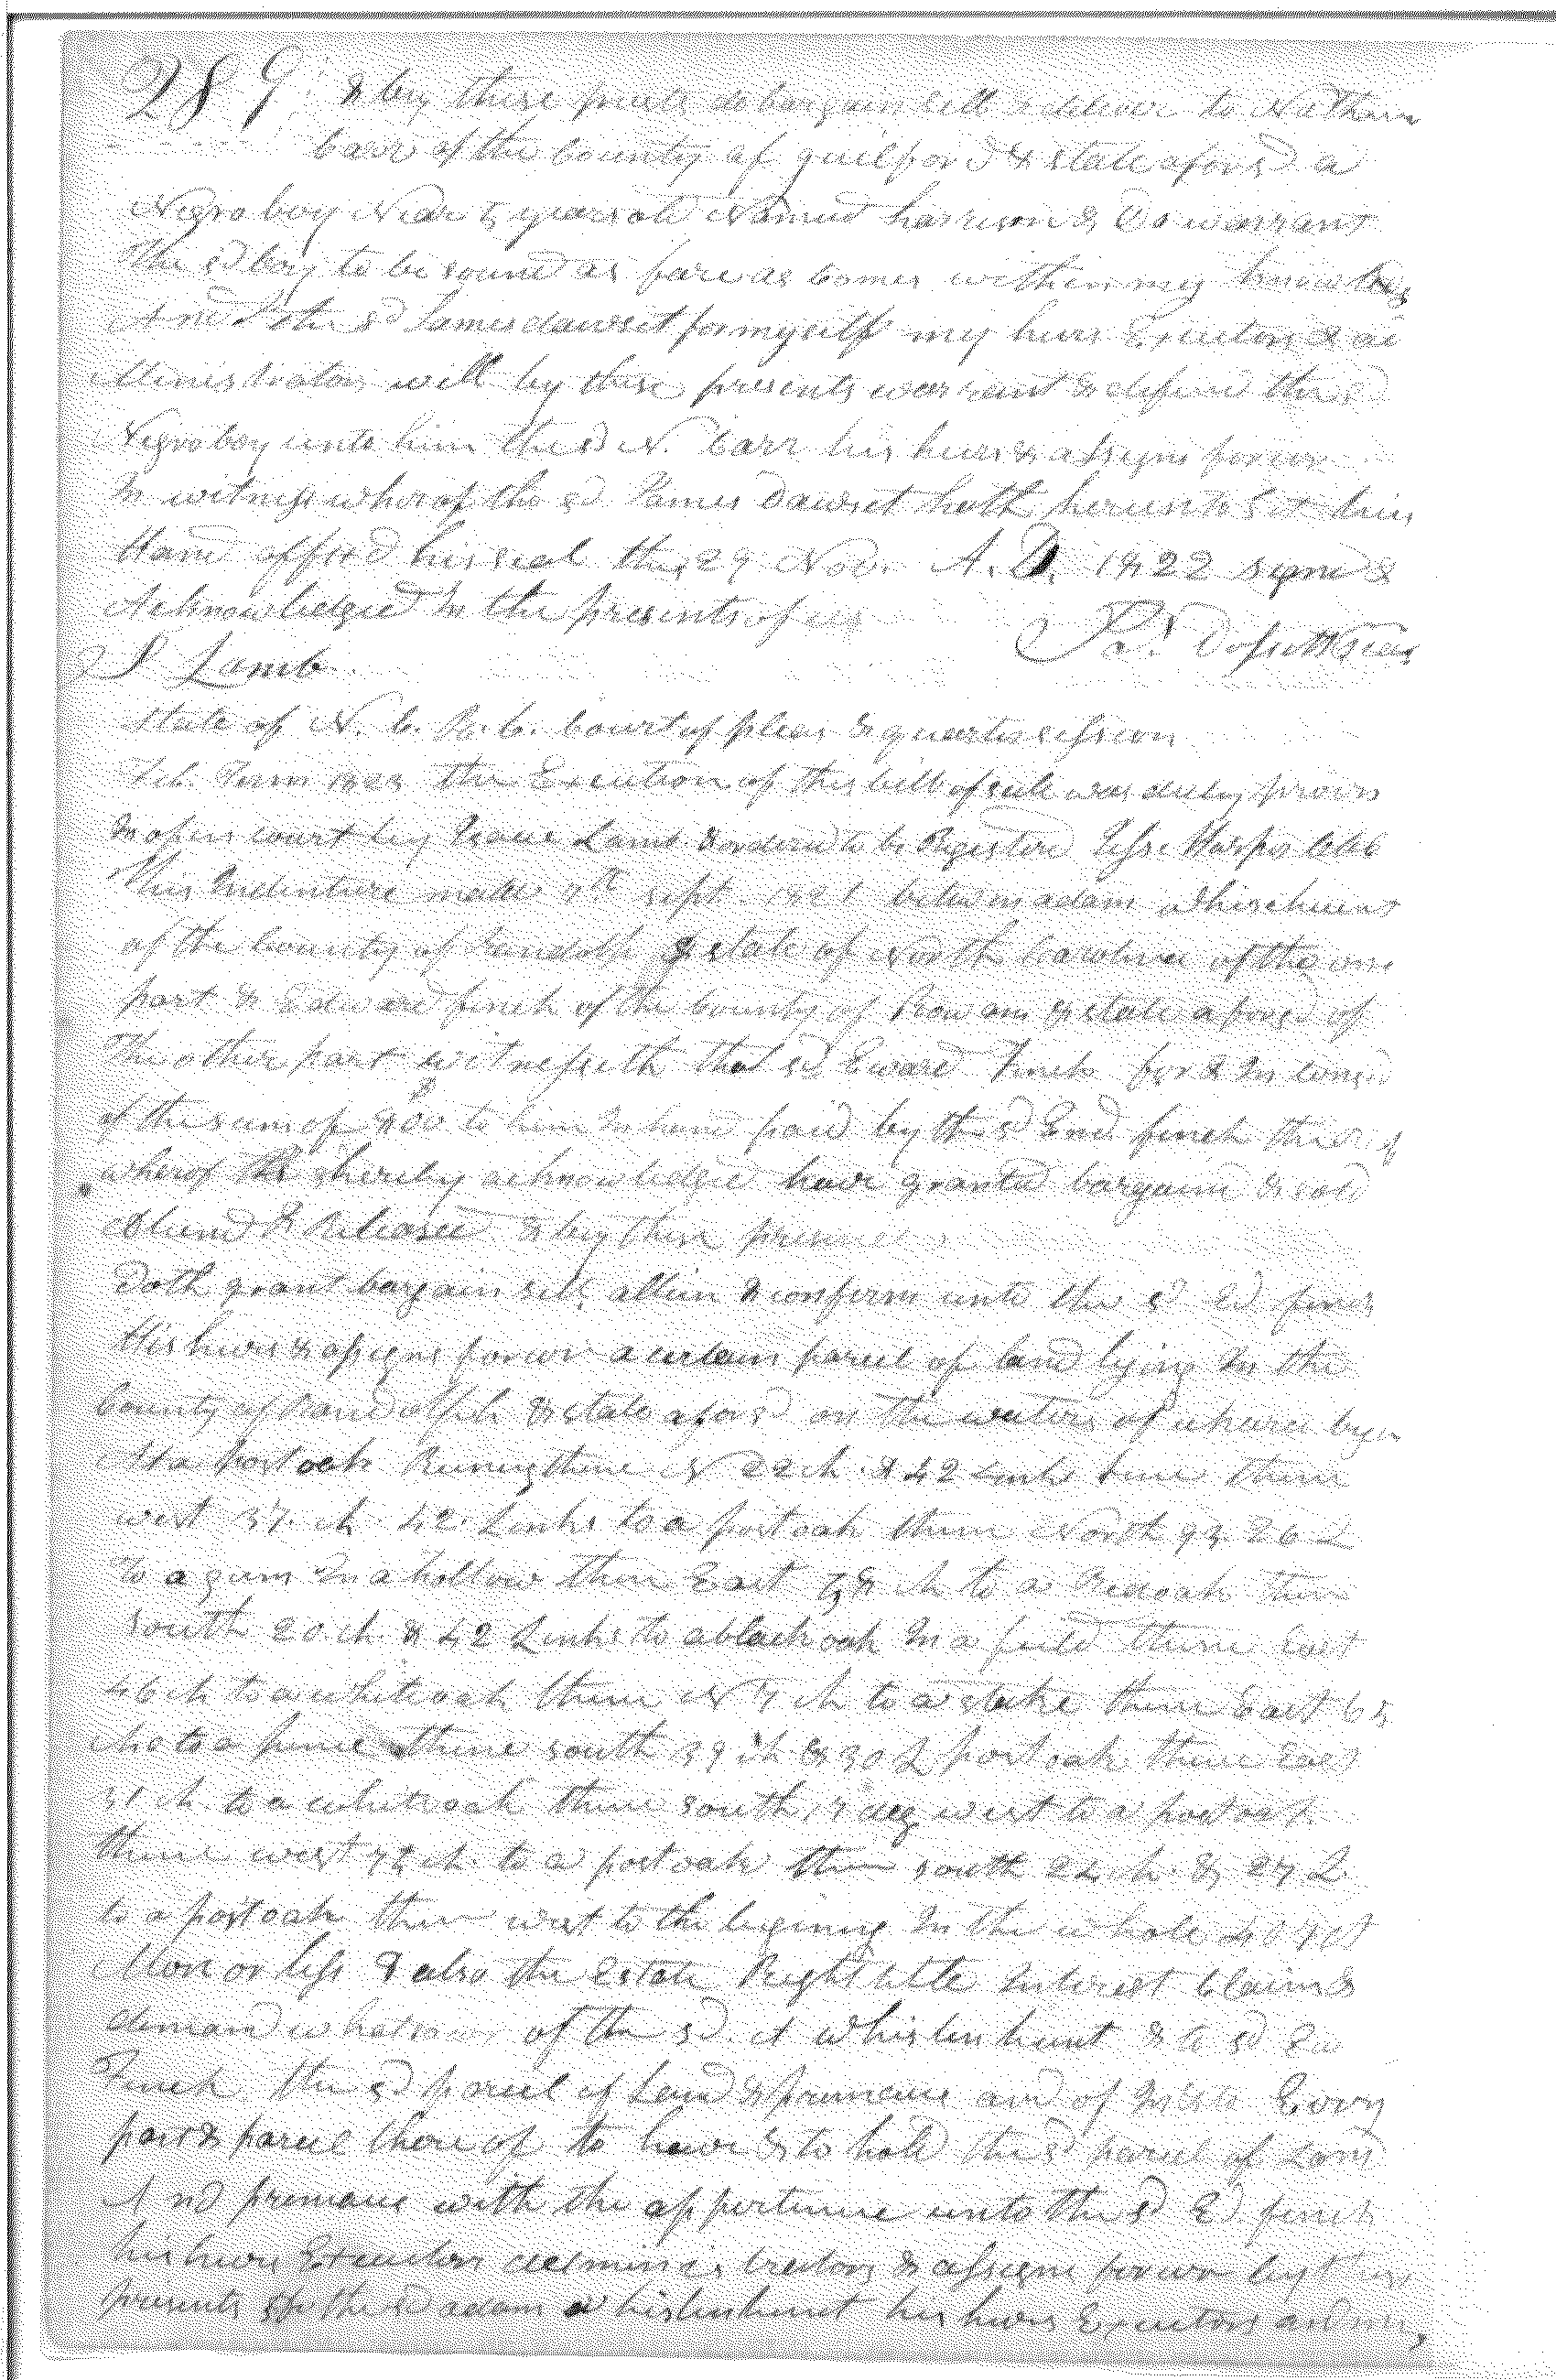 289 & by these presents do bargain sell & deliver to Nathan
Carr of the County of guilford & state afors'd a
Negro boy Near 5 years old Named harrison & Do warrant
The sd boy to be sound as fare as Comes within my knowledg
And I the sd James dawset for myself my heirs Executors & ad
Ministrators will by these presents warrant & defend the sd
Negro boy unto him the sd N. Carr his heirs & assigns forever
In witness wherof the sd James Dawset hath hereunto Set his
Hand affixd his seal this 29 Nov. A.D. 1822 signd &
Acknowledged In the presents of us
Ja.s Dossett seal
I Lamb
State of N. C. R. C. Court of pleas & quarter session
Feb. Term 1823 the Execution of this bill of sale was duly proven
In open court by Isaac Lamb & orderd to be Registerd Jesse Harper Clk
This Indenture made 7th sept. 1821 between adam whisenhunt
of the County of Randolph & state of North Carolina of the one
part & Edward finch of the County of Rowan & state aforsd of
The other part witnesseth that sd Edward Finch for & In consd
of the sum of $ to him In hand paid by the sd Ed finch the
wherof is hereby acknowledged have granted bargaind & sold
aliend & Released & by these presents
doth grant bargain sell alien & confirm unto the sd Ed finch
His heirs & assigns forever a certain parcel of land lying In the
County of Randolph & state aforsd on the waters of uharie begin
At a post oak Runing thence N 22 ch. & 42 Links thence
west 37 ch. 42 Links to a post oak thence North 26 L
To a gum In a hollow thence East ch to a Red oak thence
south 20 ch & 42 Links to a black oak In a field thence East
46 ch to a white oak thence N 7 ch to a stake thence East 65
chs to a pine thence south 39 ch & 30 L post oak thence East
31 ch. to a white oak thence south 17 deg west to a post oak
thence west ch. to a post oak thence south 24 ch. & 27 L
to a post oak thence west to the begining In the whole
More or less & also the Estate Right title Interest Claim &
demand whatsoever of the sd A whisenhunt & to sd Ed
Finch the sd parcel of Land & premises and of In & to Every
part & parcel thereof to have & to hold the sd parcel of Land
And premises with the appertinence unto the sd Ed finch
his heirs Executors administrators & assigns forever by these
presents & the sd adam whisenhunt his heirs Executors admin